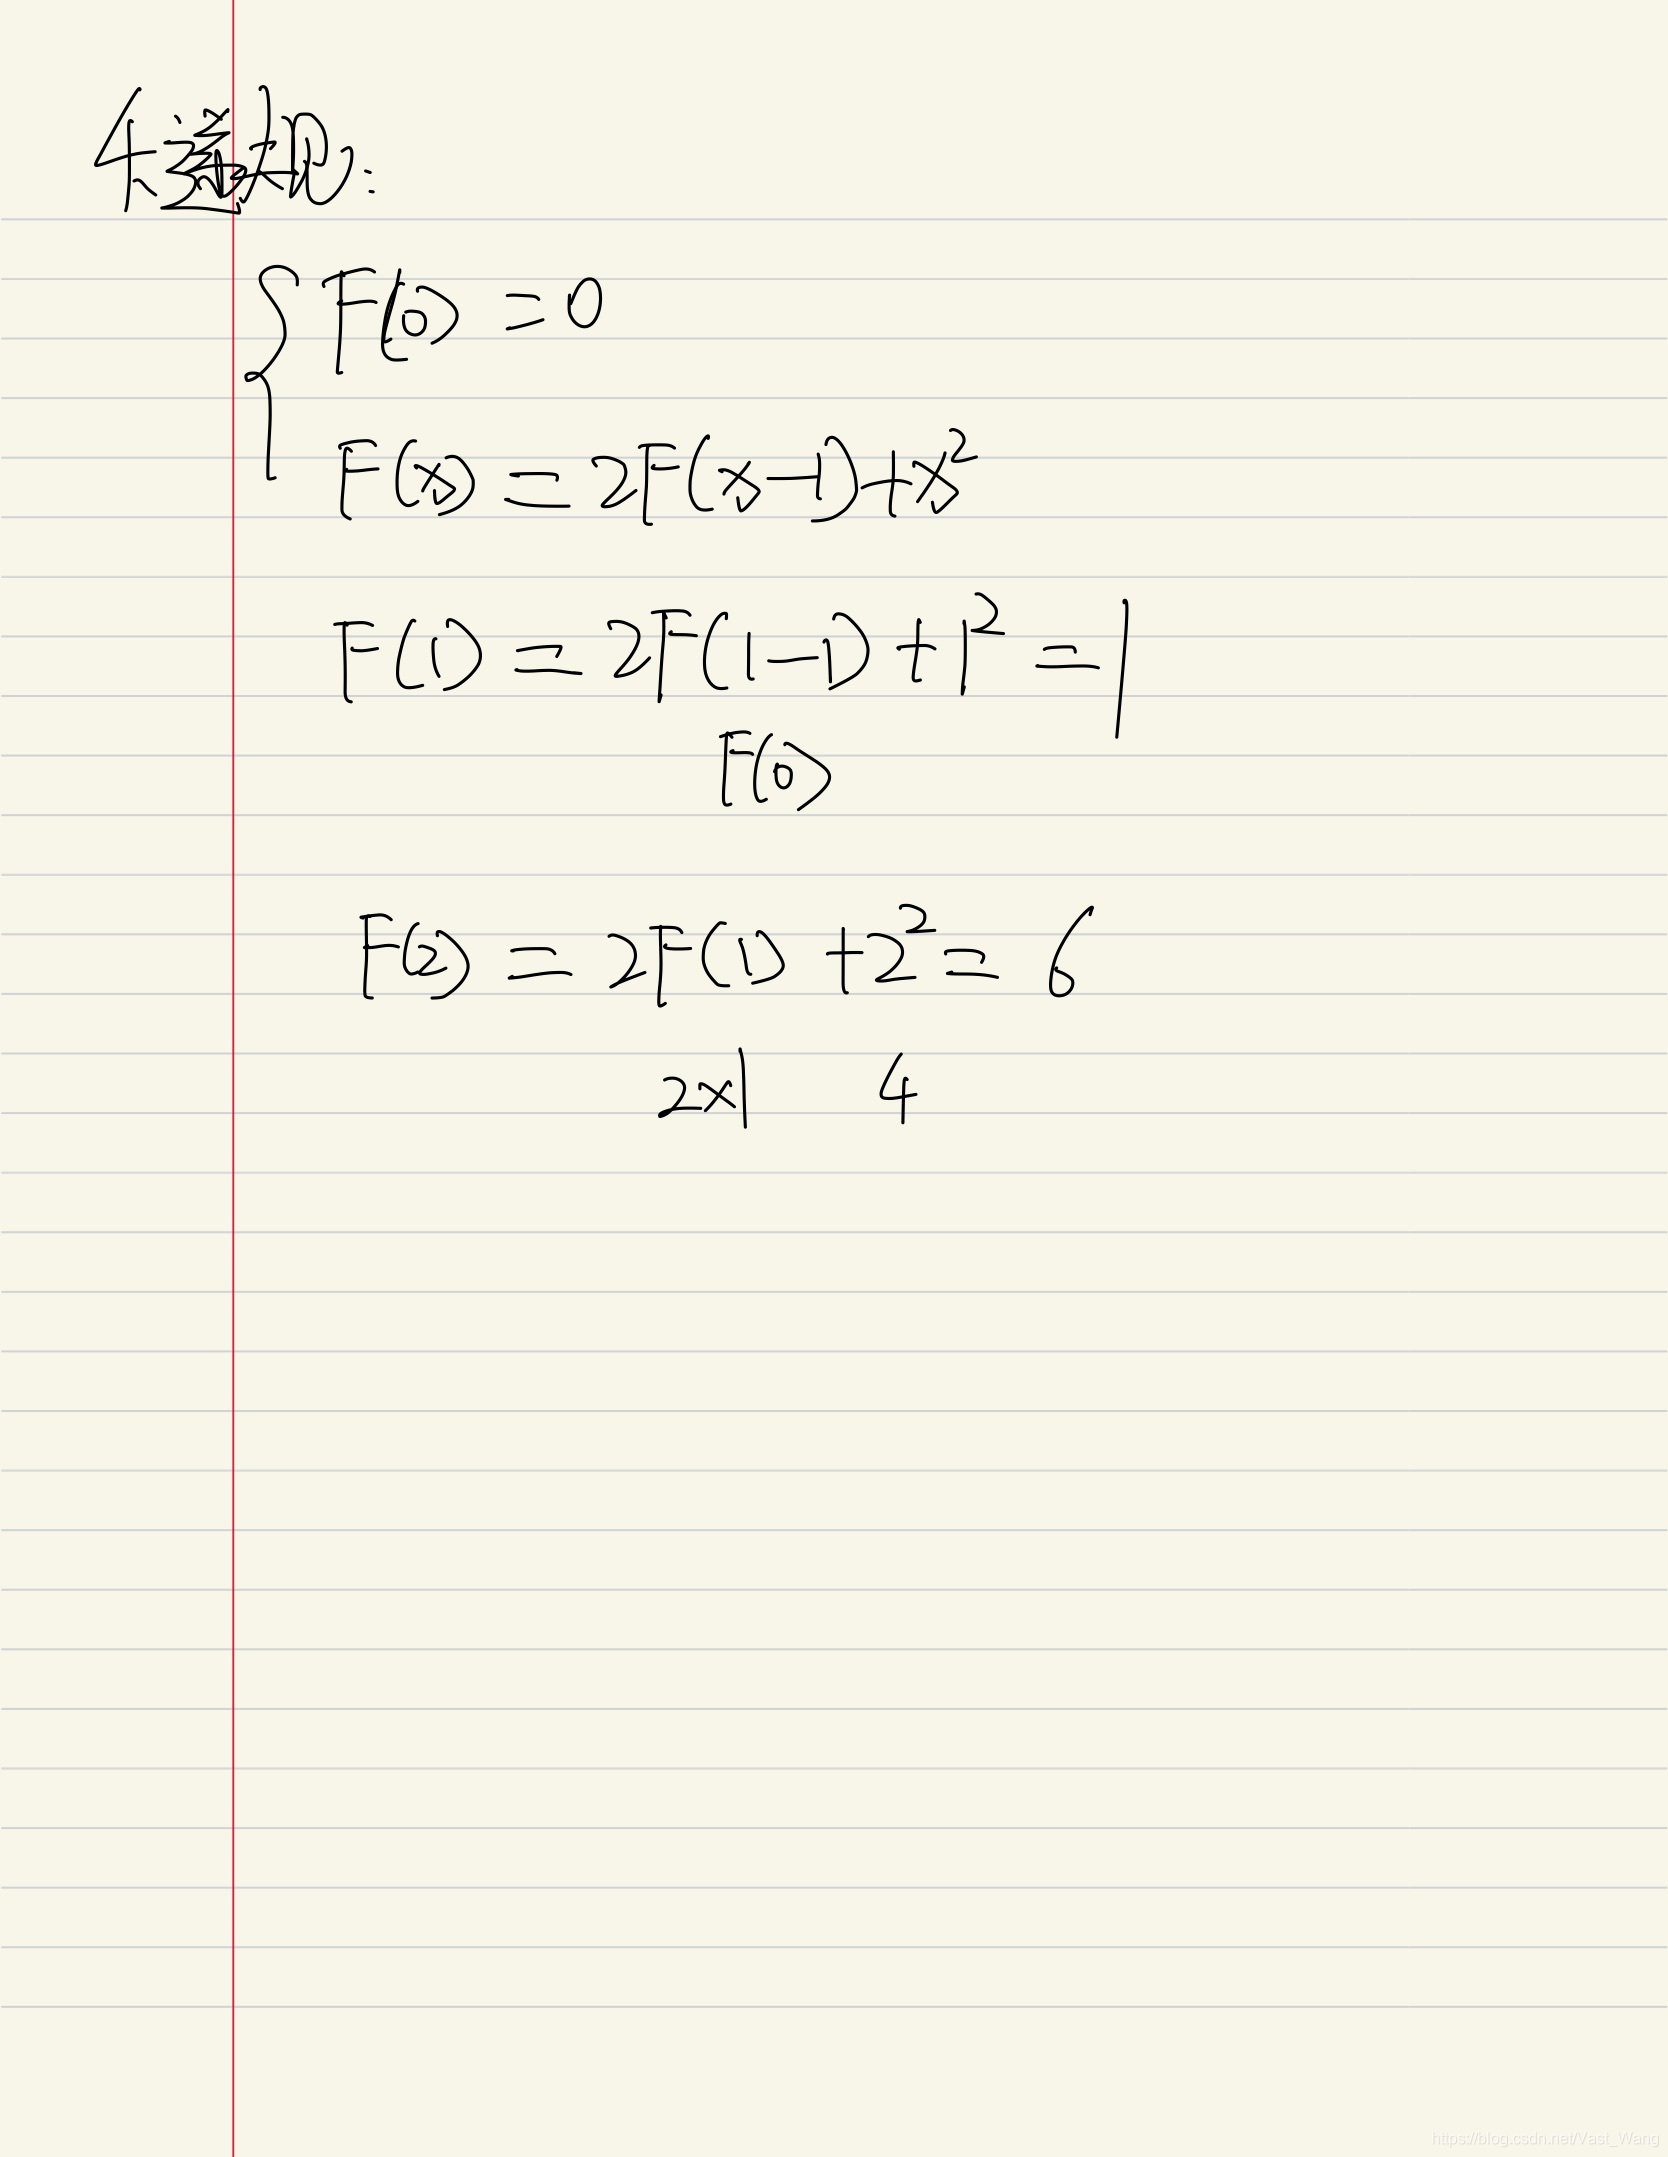 F(0) = 0
F(x) = 2F(x-1)+x²
F(1) = 2F(1-1) + 1² = 1
F(0)
F(2) = 2F(1) + 2² = 6
2×1 4
https://blog.csdn.net/Vast_Wang